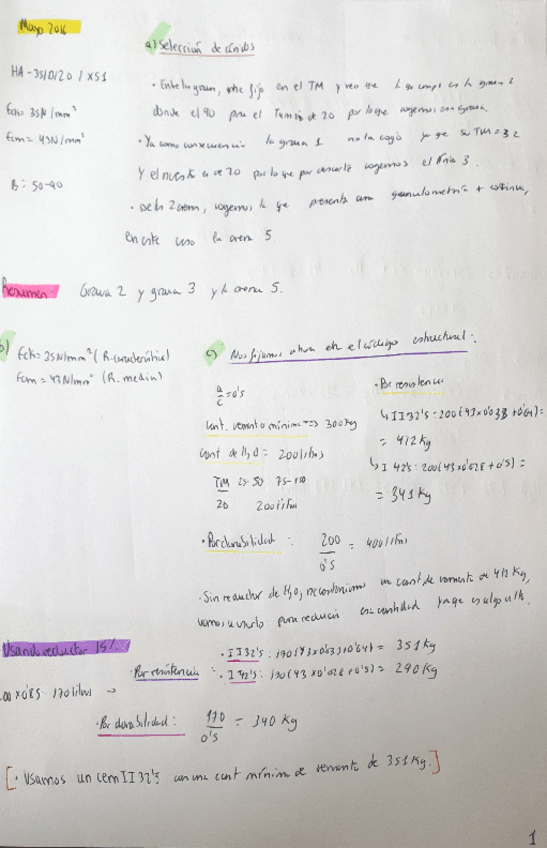 Mayo 2016
a) Selección de áridos
HA-35/B/20/XS1
fck= 35N/mm²
fcm= 43N/mm²
B: 50-90
en el TM y veo que la grava 2
donde el 90 para el Tamiz de 20 por lo que cogemos esa grava.
· Ya como consecuencia la grava 1 no la cojo ya que su TM=32
Y el nuestro es de 20 por lo que por descarte cogemos el 3.
· De las 2 arenas, cogemos la que presenta una granulometría + continua,
En este caso la arena 5.
Resumen: Grava 2 y grava 3 y la arena 5.
b) Fck= 35N/mm² (R. característica)
Fcm= 43N/mm² (R. media)
c) Nos fijamos ahora en el código estructural:
a/c = 0'5
Cont. cemento mínimo => 300Kg
Cont de H₂O = 200 litros
TM 25-50 75-100
20 200 litros
· Por resistencia
↳ II 32'5 = 200(43×0'038+0'64) =
= 412Kg
↳ I 42'5: 200(43×0'028+0'5) =
= 341Kg
· Por durabilidad: 200/0'5 = 400 litros
· Sin reductor de H₂O, un cont de cemento de 412Kg,
vamos a usarlo para reducir esa cantidad ya que es algo alta.
Usando reductor 15%
00×0'85= 170 litros →
Por resistencia: · II 32'5: 170(43×0'033+0'64) = 351Kg
· I 42'5: 170(43×0'028+0'5) = 290Kg
· Por durabilidad: 170/0'5 = 340 Kg
[· Usamos un cem II 32'5 con una cont mínima de cemento de 351Kg.]
1